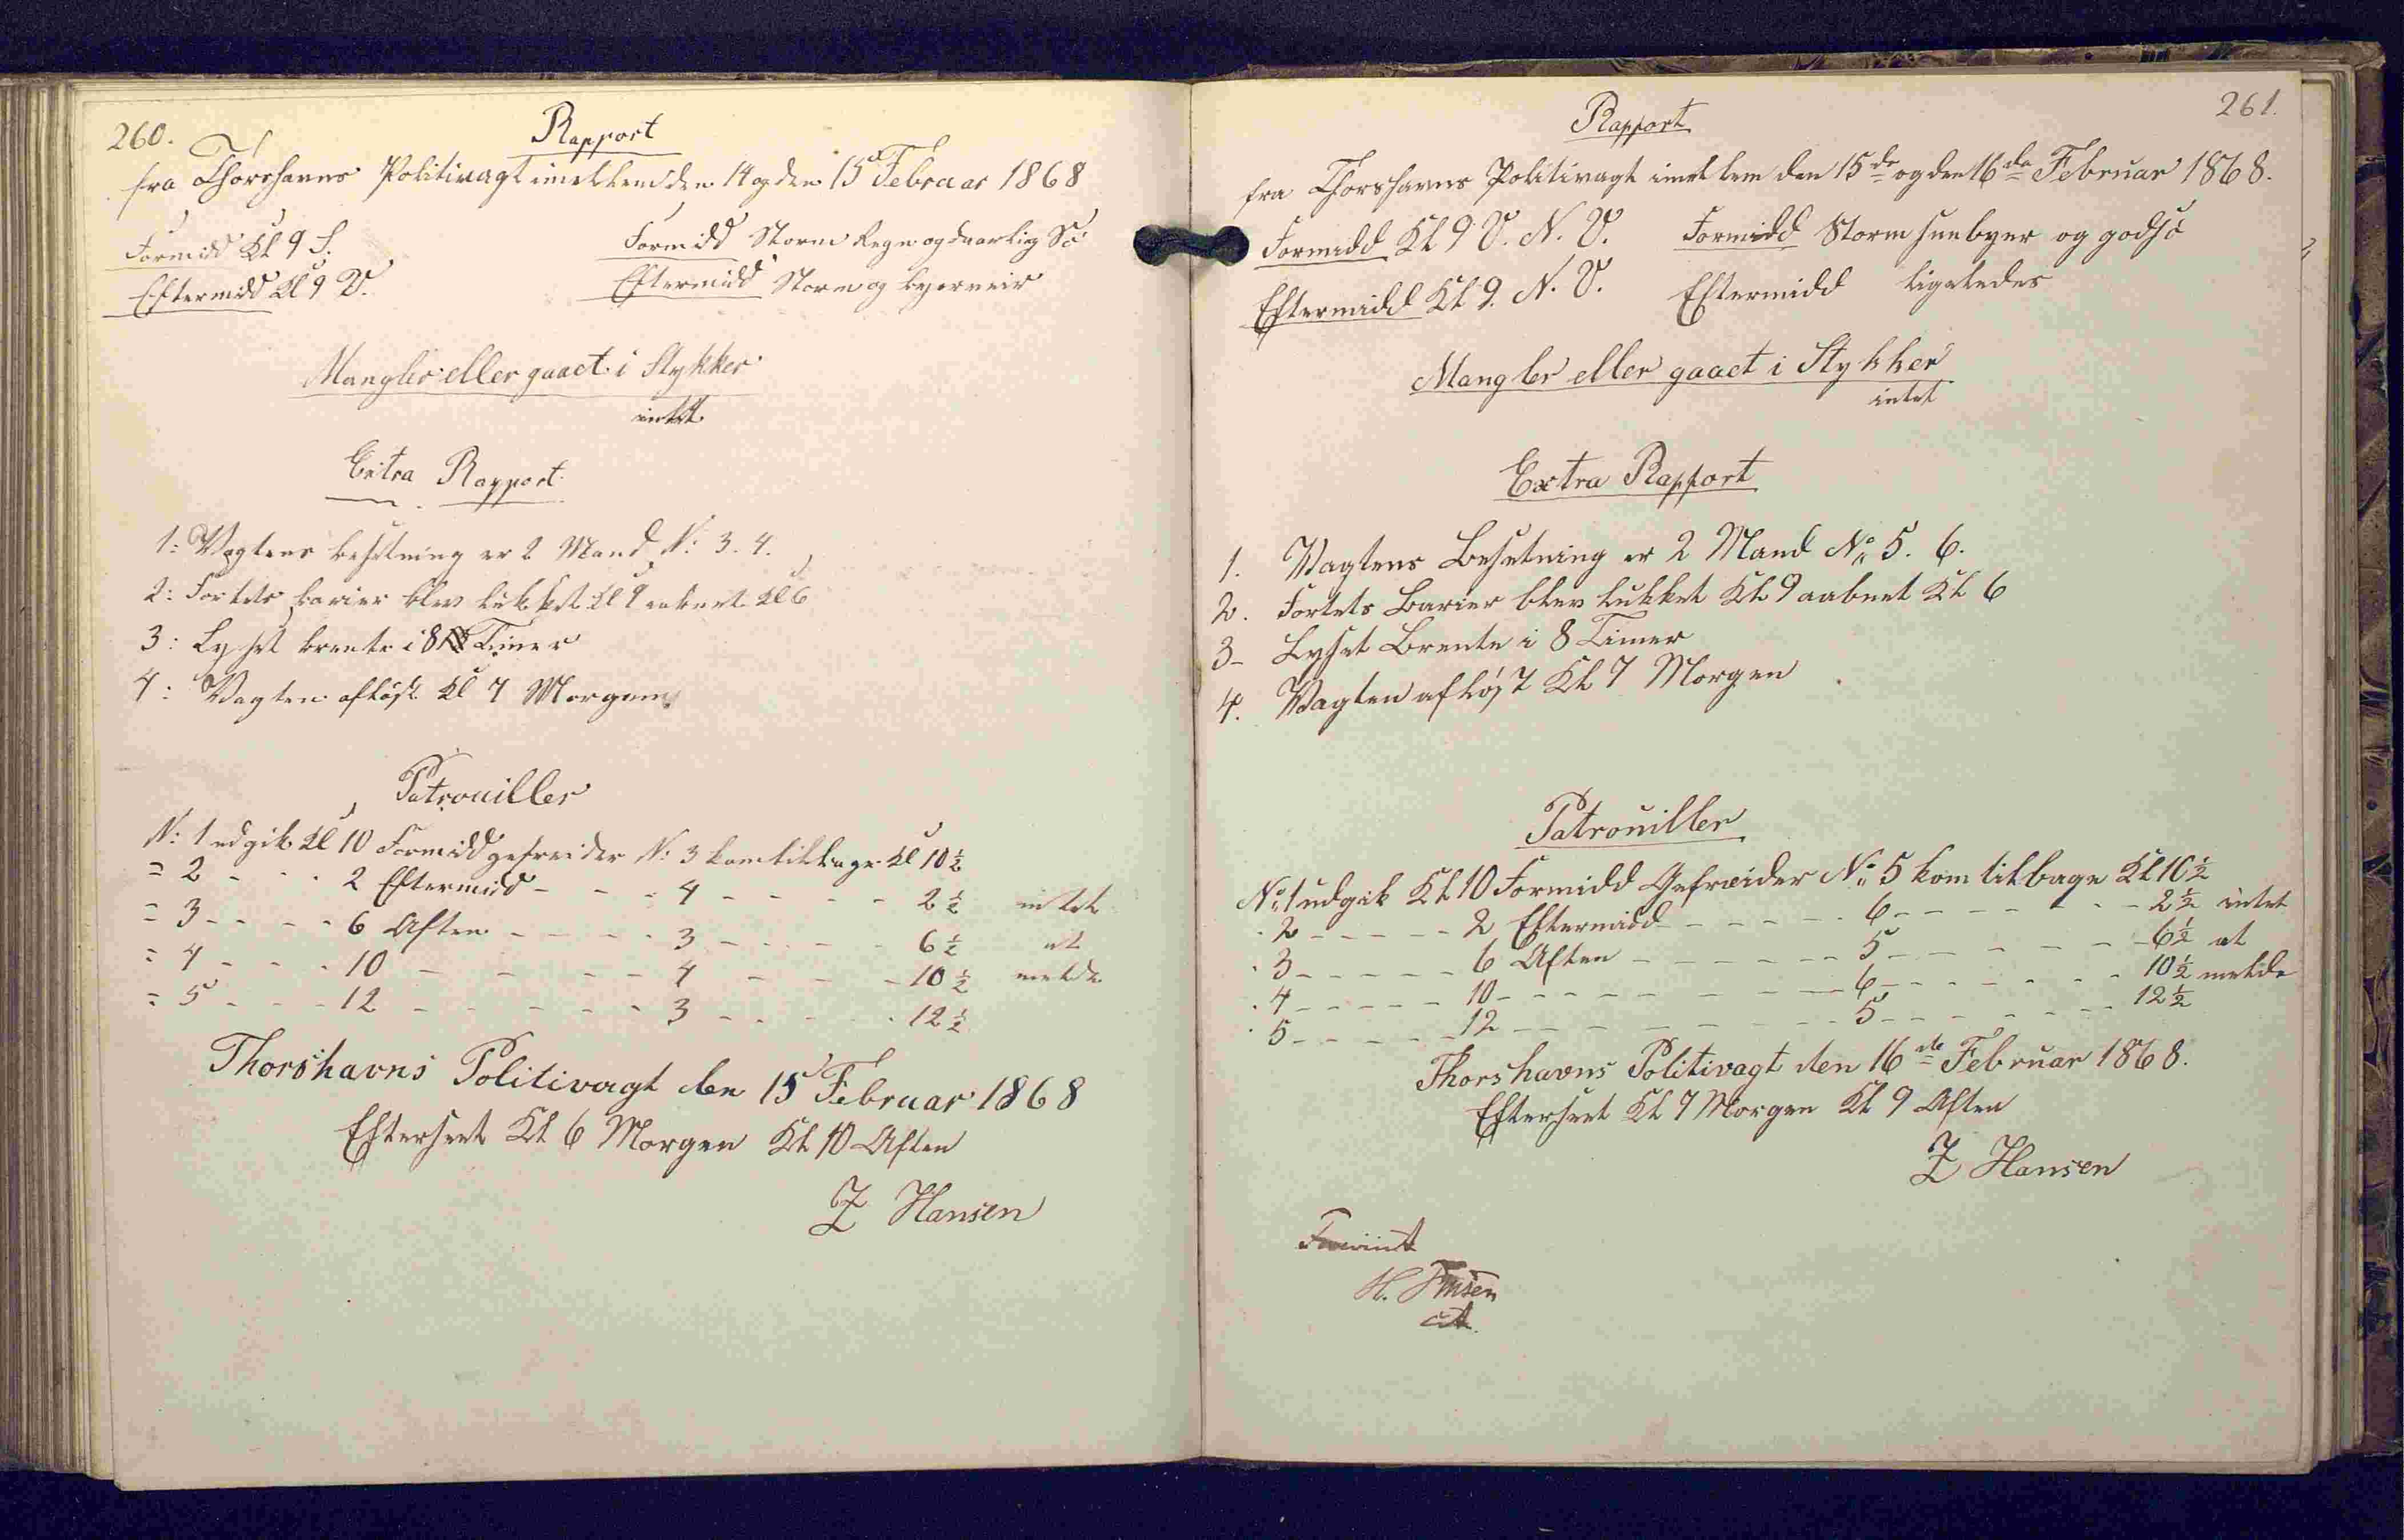 260.
Rapport
fra Thorshavns Politivagt imellem den 14 og den 15 Februar 1868
Formidd Kl 9 S.
Formidd Storm Regn og svarlig Sö
Eftermidd Kl 9 V.
Eftermidd Storm og byerveir
Mangler eller gaaet i Stykker
intet
Extra Rapport
1: Vagtens besetning er 2 Mand N: 3. 4.
2: Fortets barier blev lukket Kl 9 aabnet Kl 6
3: Lyset brente i 8 Timer
4: Vagten aflöst Kl 7 Morgen
Patrouiller
N: 1 udgik Kl 10 Formidd gefreider N: 3 kom tilbage Kl 10½
= 2 - - - 2 Eftermidd - - - 4 - - - - 2½ intet
= 3 - - - - 6 Aften - - - - 3 - - - - 6½ at
= 4 - - - 10 - - - - - 4 - - - 10½ melde
= 5 - - - 12 - - - - - 3 - - - - 12½
Thorshavns Politivagt den 15 Februar 1868
Efterseet Kl 6 Morgen Kl 10 Aften
Z Hansen
261.
Rapport
fra Thorshavns Politivagt imellem den 15de og den 16de Februar 1868.
Formidd Kl 9 V. N. V.
Formidd Storm snebyer og godsö
Eftermidd Kl 9. N. V.
Eftermidd ligeledes
Mangler eller gaaet i Stykker
intet
Extra Rapport
1. Vagtens Besetning er 2 Mand No 5. 6.
2. Fortets Barier blev lukket Kl 9 aabnet Kl 6
3- Lyset Brente i 8 Timer
4. Vagten aflöst Kl 7 Morgen
Patrouiller
No 1 udgik Kl 10 Formidd Gefreider No 5 kom tilbage Kl 10½
2 - - - - - 2 Eftermidd - - - - - 6 - - - - - - 2½ intet
3 - - - - - 6 Aften - - - - - - 5 - - - - - 6½ at
4 - - - - - 10 - - - - - - - 6 - - - - - - 10½ melde
5 - - - - - 12 - - - - - - - 5 - - - - - - 12½
Thorshavns Politivagt den 16de Februar 1868.
Efterseet Kl 7 Morgen Kl 9 Aften
Z Hansen
H.